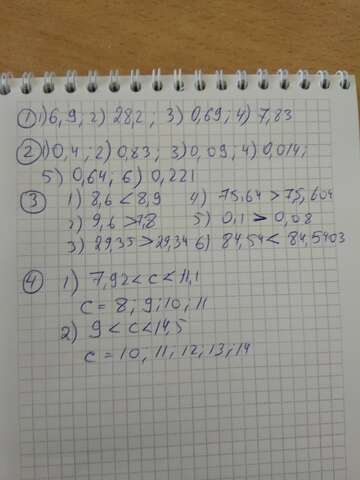 ① 1) 6,9; 2) 28,2; 3) 0,69; 4) 7,83
② 1) 0,4; 2) 0,83; 3) 0,09, 4) 0,014;
5) 0,64, 6) 0,221
③ 1) 8,6 < 8,9 4) 75,64 > 75,604
2) 9,6 > 7,8 5) 0,1 > 0,08
3) 29,35 > 29,34 6) 84,54 < 84,5403
④ 1) 7,92 < c < 11,1
c = 8; 9; 10; 11
2) 9 < c < 14,5
c = 10; 11; 12; 13; 14